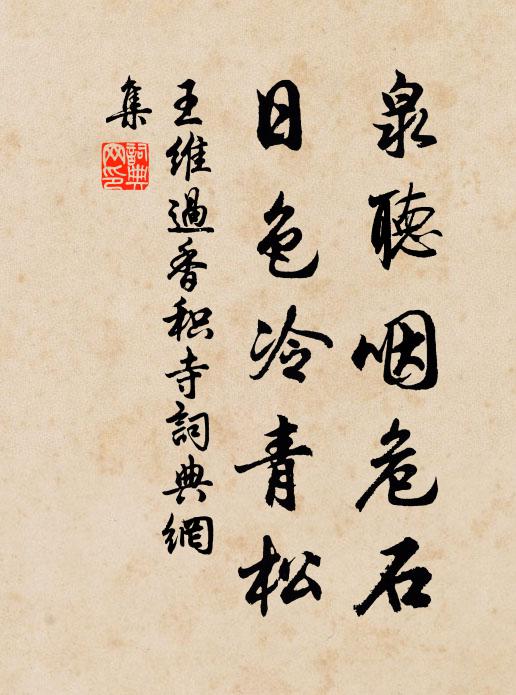 泉聽咽危石
日色冷青松
王維過香积寺詞典網
集
詞典
网印